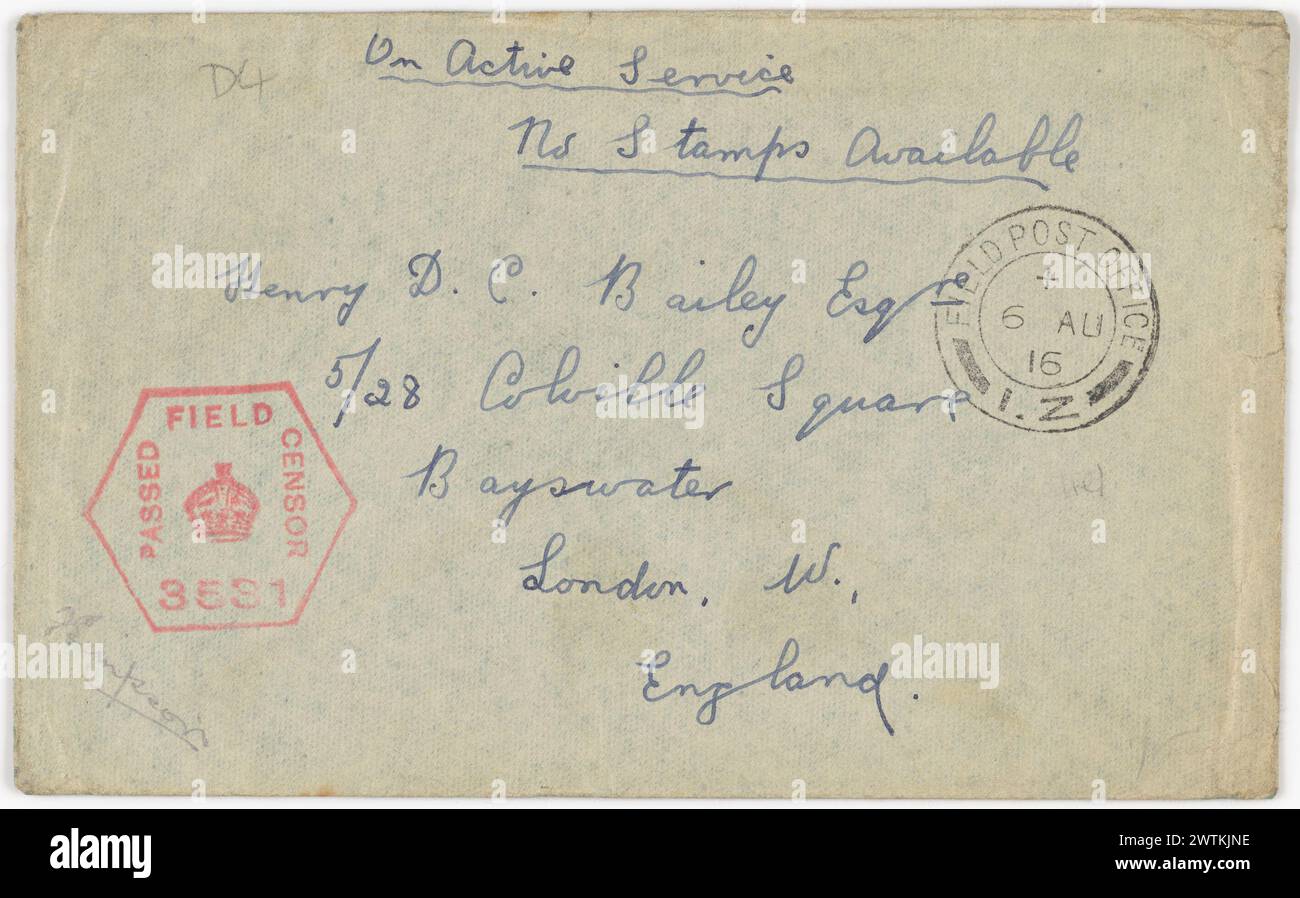 On Active Service
D4
No Stamps Available
Henry D. C. Bailey Esqre
5/28 Colville Square
Bayswater
London. W.
England.
FIELD POST OFFICE
6 AU
16
1.Z
PASSED FIELD CENSOR
3531
alamy
Image ID: 2WTKJNE
www.alamy.com